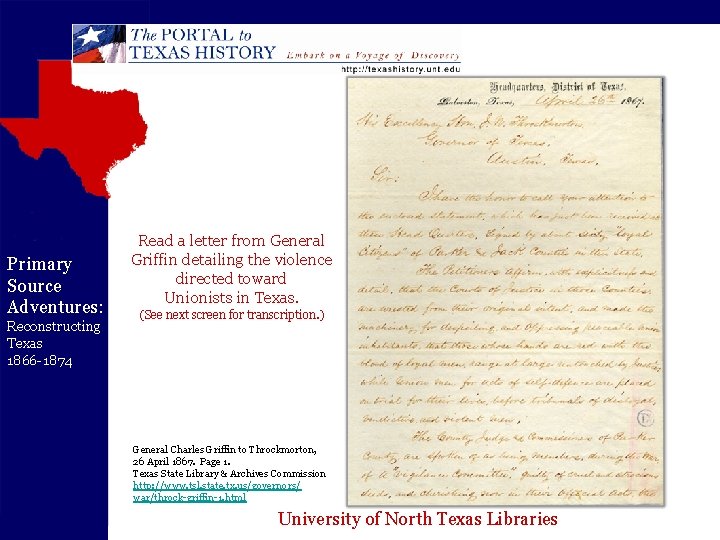 The PORTAL to
TEXAS HISTORY
Embark on a Voyage of Discovery
http://texashistory.unt.edu
Primary
Source
Adventures:
Reconstructing
Texas
1866-1874
Read a letter from General
Griffin detailing the violence
directed toward
Unionists in Texas.
(See next screen for transcription.)
General Charles Griffin to Throckmorton,
26 April 1867. Page 1.
Texas State Library & Archives Commission
http://www.tsl.state.tx.us/governors/
war/throck-griffin-1.html
Headquarters, District of Texas,
Galveston, Texas, April 26th 1867.
His Excellency Hon. J. W. Throckmorton
Governor of Texas,
Austin, Texas.
Sir:
I have the honor to call your attention to
the enclosed statement, which has just been received at
these Head Quarters, signed by about sixty "loyal
Citizens" of Parker & Jack Counties in this state.
The Petitioners affirm, with explicitness and
detail, that the Courts of Justice in those Counties,
are diverted from their original intent, and made the
machinery for despoiling and oppressing peaceable union
inhabitants, that those whose hands are red with the
blood of loyal men, range at large untouched by Justice
while Union men for acts of self-defence are placed
on trial for their lives, before tribunals of disloyal,
vindictive and violent men.
The County Judge & Commissioners of Parker
County are spoken of as being members, during the war
of a "Vigilance Committee" guilty of cruel and atrocious
deeds, and cherishing now in their official acts, the
University of North Texas Libraries